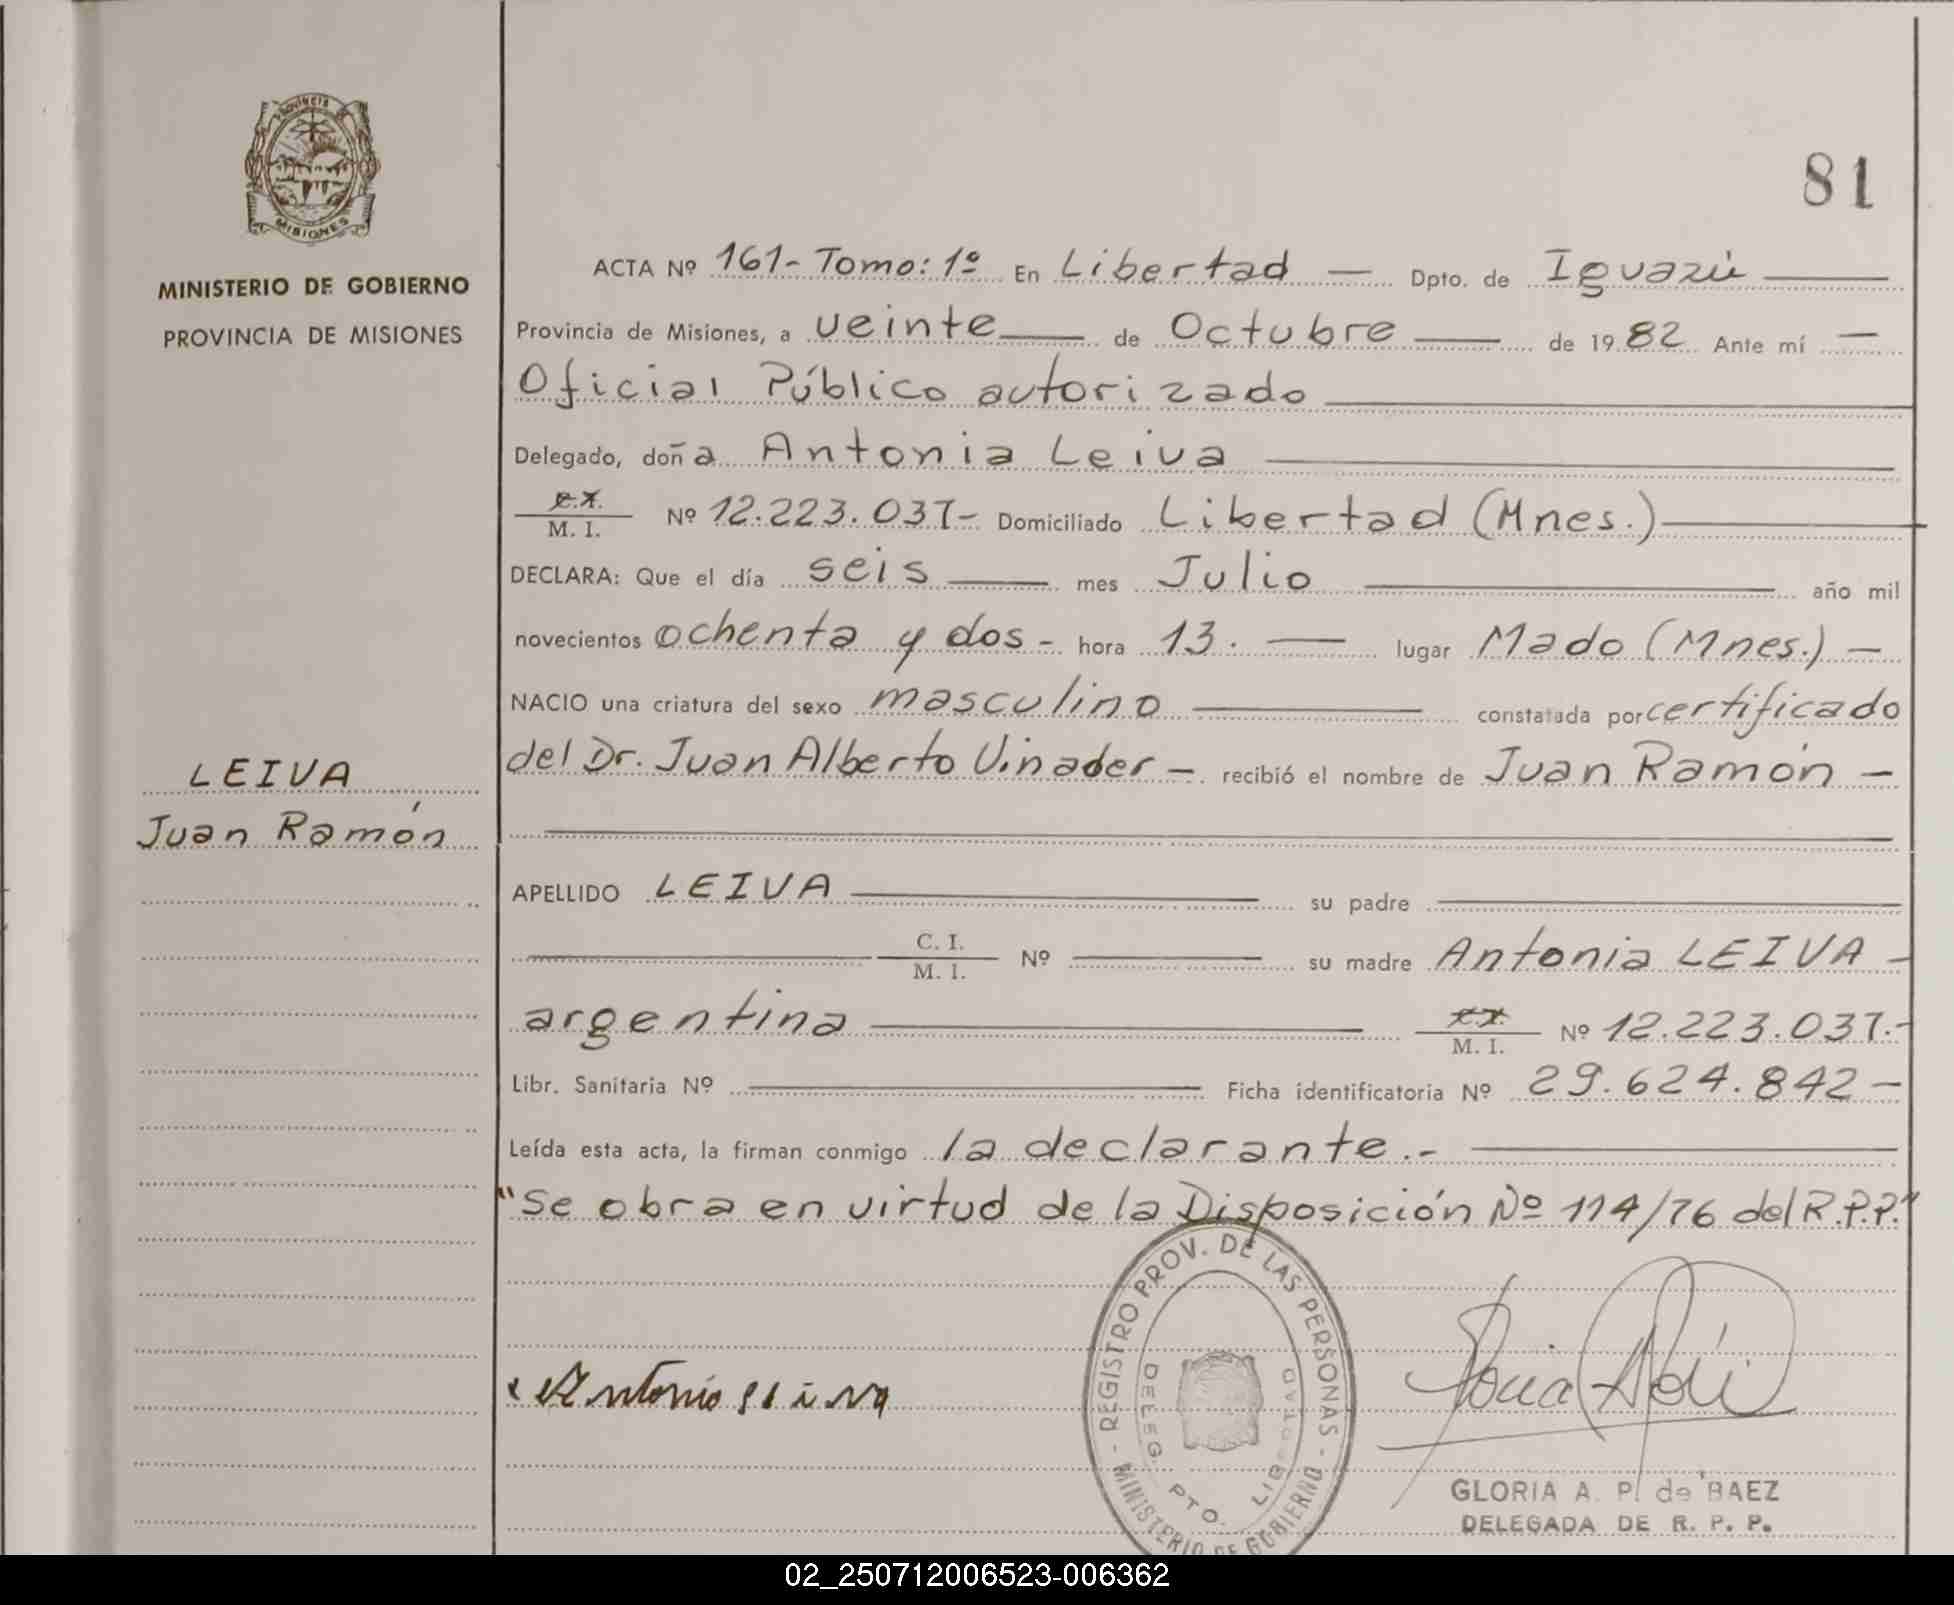 PROVINCIA
MISIONES
MINISTERIO DE GOBIERNO
PROVINCIA DE MISIONES
LEIVA
Juan Ramón
81
ACTA Nº 161- Tomo: 1º En Libertad — Dpto. de Iguazú
Provincia de Misiones, a veinte de Octubre de 1982 Ante mí —
Oficial Público autorizado
Delegado, doña Antonia Leiva
C.I.
M. I. Nº 12.223.037- Domiciliado Libertad (Mnes.)
DECLARA: Que el día seis mes Julio año mil
novecientos ochenta y dos - hora 13. lugar Mado (Mnes.) —
NACIO una criatura del sexo masculino constatada por certificado
del Dr. Juan Alberto Vinader - recibió el nombre de Juan Ramón —
APELLIDO LEIVA su padre
C. I.
M. I. Nº su madre Antonia LEIVA -
argentina C.I.
M. I. Nº 12.223.037.-
Libr. Sanitaria Nº Ficha identificatoria Nº 29.624.842-
Leída esta acta, la firman conmigo la declarante.-
"Se obra en virtud de la Disposición Nº 114/76 del R.P.P."
REGISTRO PROV. DE LAS PERSONAS - MINISTERIO DE GOBIERNO -
DELEG. PTO. LIBERTAD
GLORIA A. P. de BAEZ
DELEGADA DE R. P. P.
02_250712006523-006362